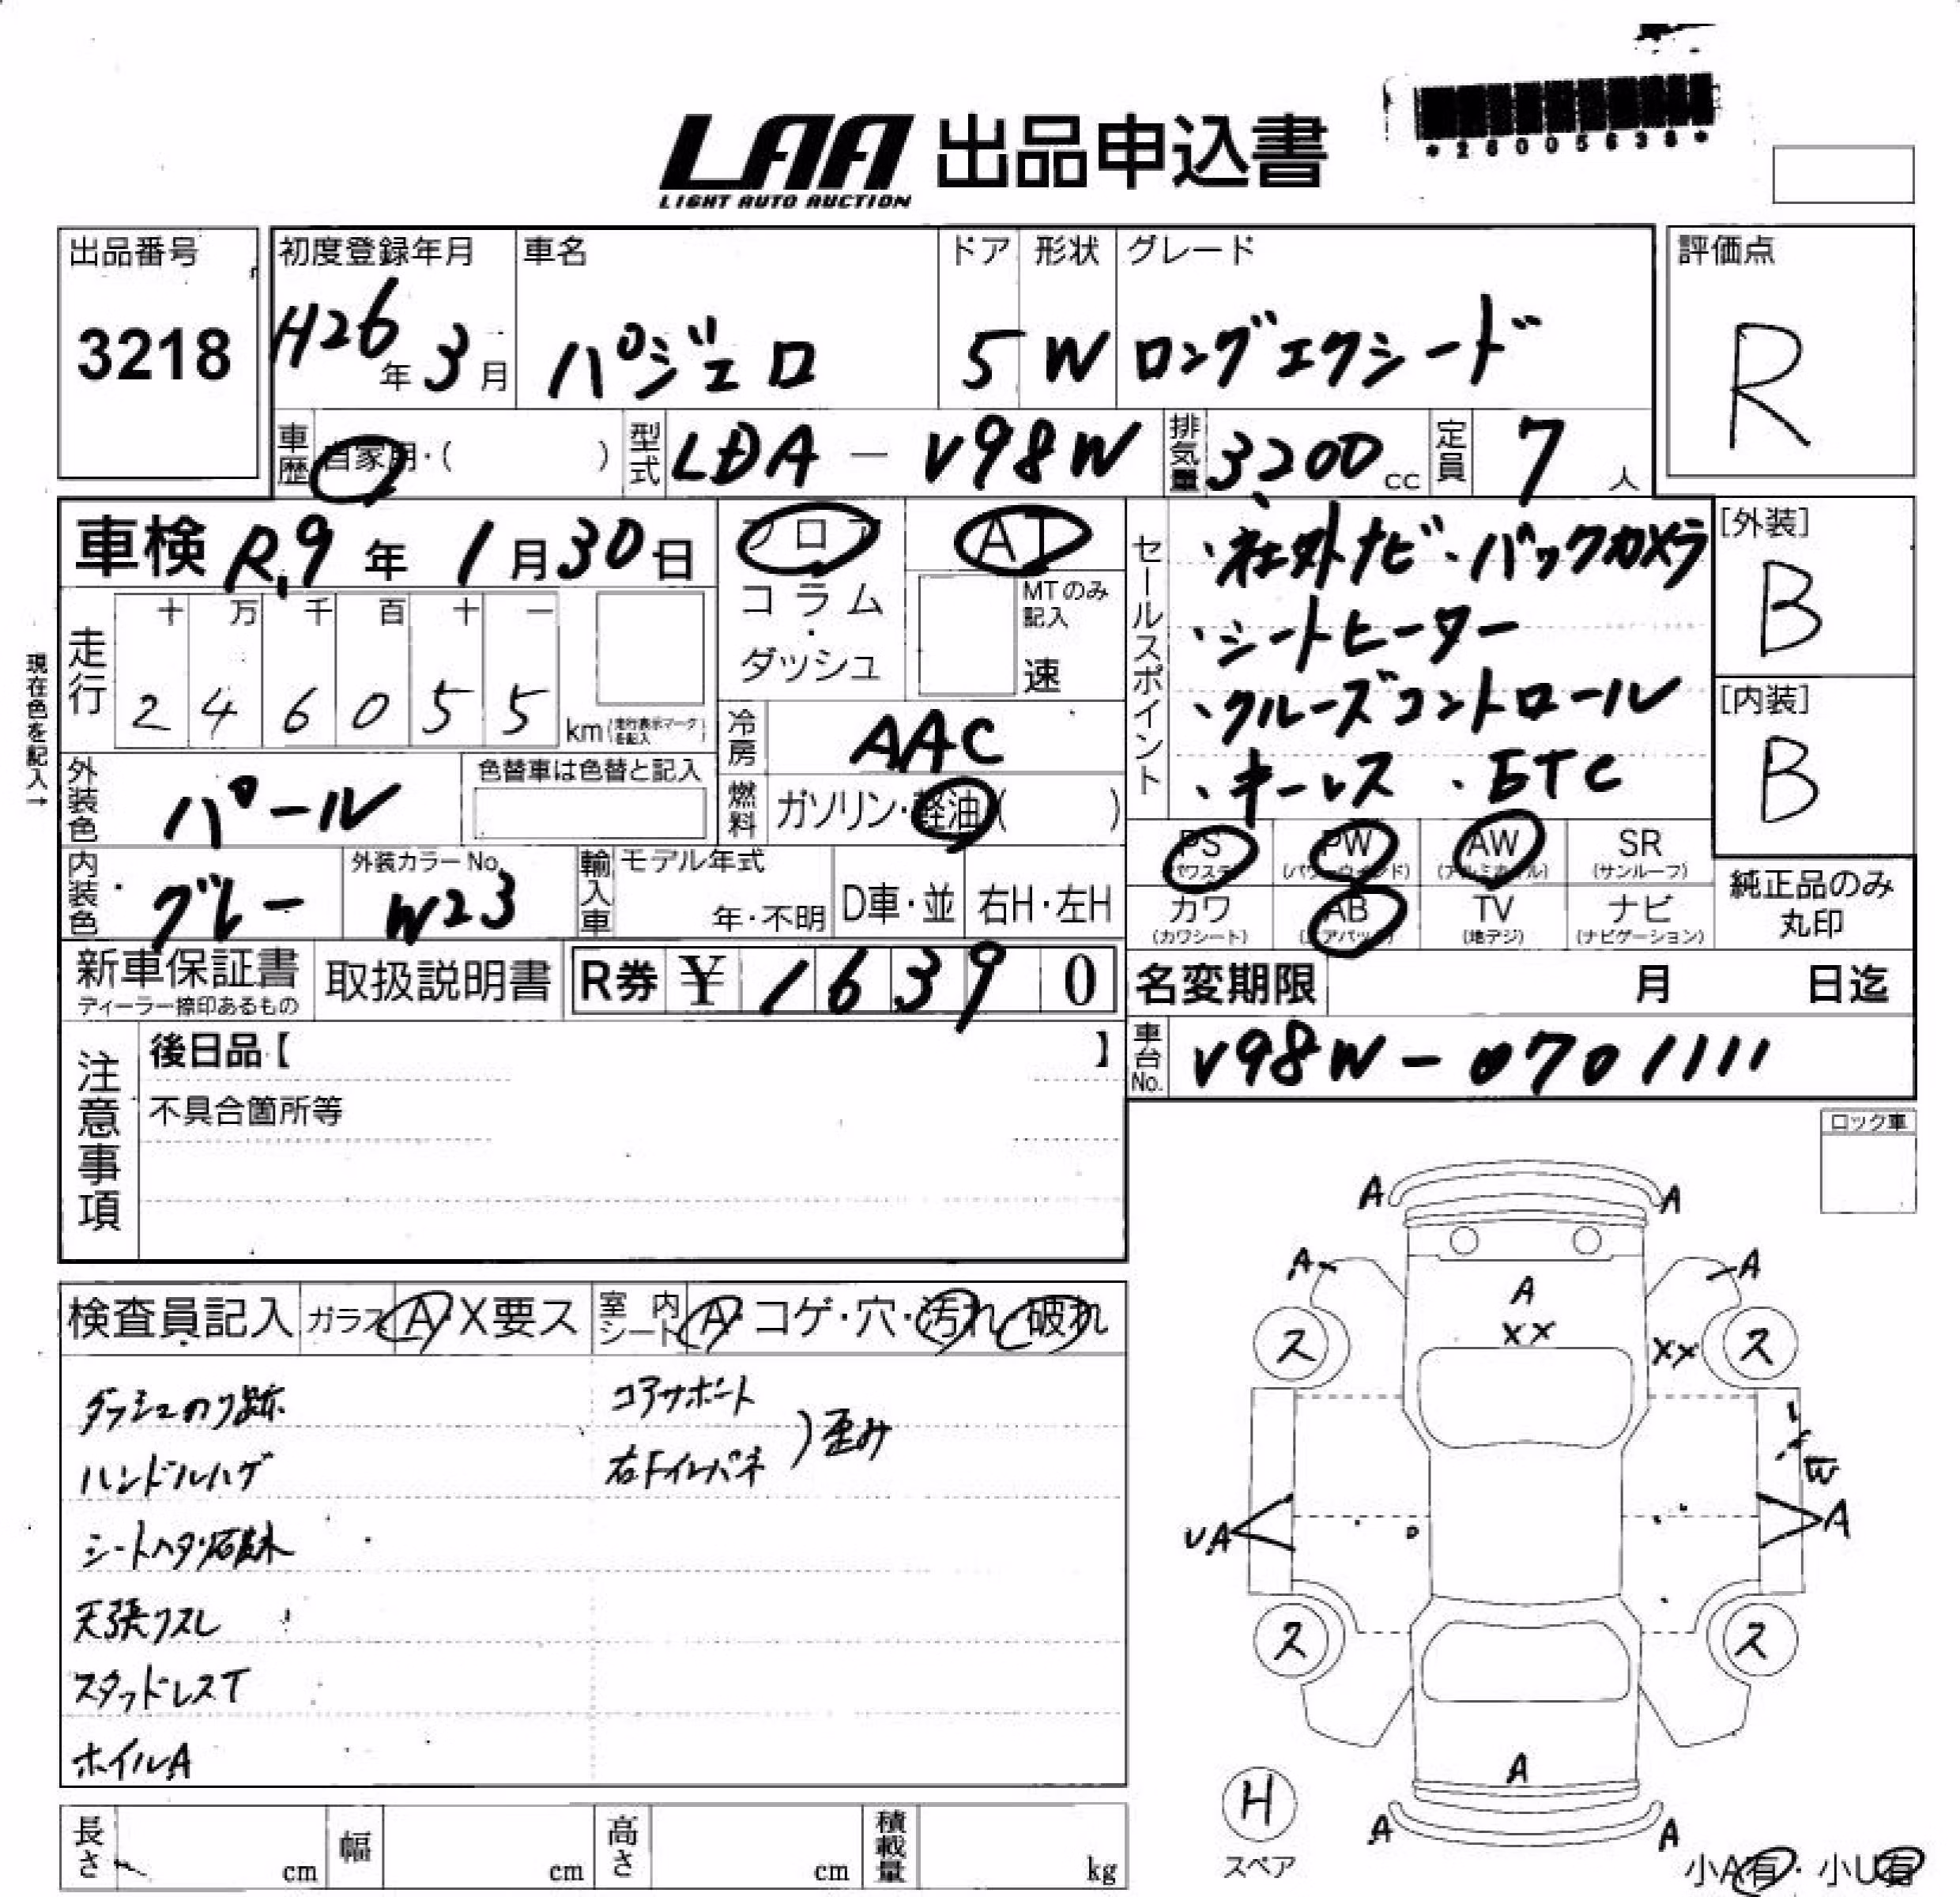 LAA 出品申込書
LIGHT AUTO AUCTION
*26005638*
出品番号
3218
初度登録年月
H26年 3月
車名
パジェロ
ドア
5
形状
W
グレード
ロングエクシード
評価点
R
車歴
自家用・( )
型式
LDA - V98W
排気量
3200 cc
定員
7 人
車検 R.9年 1月30日
フロア
コラム
・
ダッシュ
AT
MTのみ
記入
速
セールスポイント
・社外ナビ・バックカメラ
・シートヒーター
・クルーズコントロール
・キーレス ・ETC
[外装]
B
[内装]
B
現在色を記入→
走行
十 万 千 百 十 一
2 4 6 0 5 5
km(走行表示マークを記入)
冷房
AAC
外装色
パール
色替車は色替と記入
燃料
ガソリン・軽油( )
PS
(パワステ)
PW
(パワーウィンド)
AW
(アルミホイル)
SR
(サンルーフ)
カワ
(カワシート)
AB
(エアバック)
TV
(地デジ)
ナビ
(ナビゲーション)
純正品のみ
丸印
内装色
グレー
外装カラーNo.
W23
輸入車
モデル年式
年・不明
D車・並
右H・左H
新車保証書
ディーラー捺印あるもの
取扱説明書
R券 ¥ 1 6 3 9 0
名変期限 月 日迄
車台No.
V98W-0701111
注意事項
後日品【 】
不具合箇所等
ロック車
検査員記入
ガラス
A・X要ス
室内シート
A・コゲ・穴・汚れ・破れ
ダッシュのリ跡
ハンドルハゲ
天張クスレ
スタッドレスT
ホイルA
コアサポート
右Fインパネ
)歪み
A A
A A
A
XX
XX
ス ス
W
UA A
ス ス
A
A A
H
スペア
小A有・小U有
長さ cm
幅 cm
高さ cm
積載量 kg